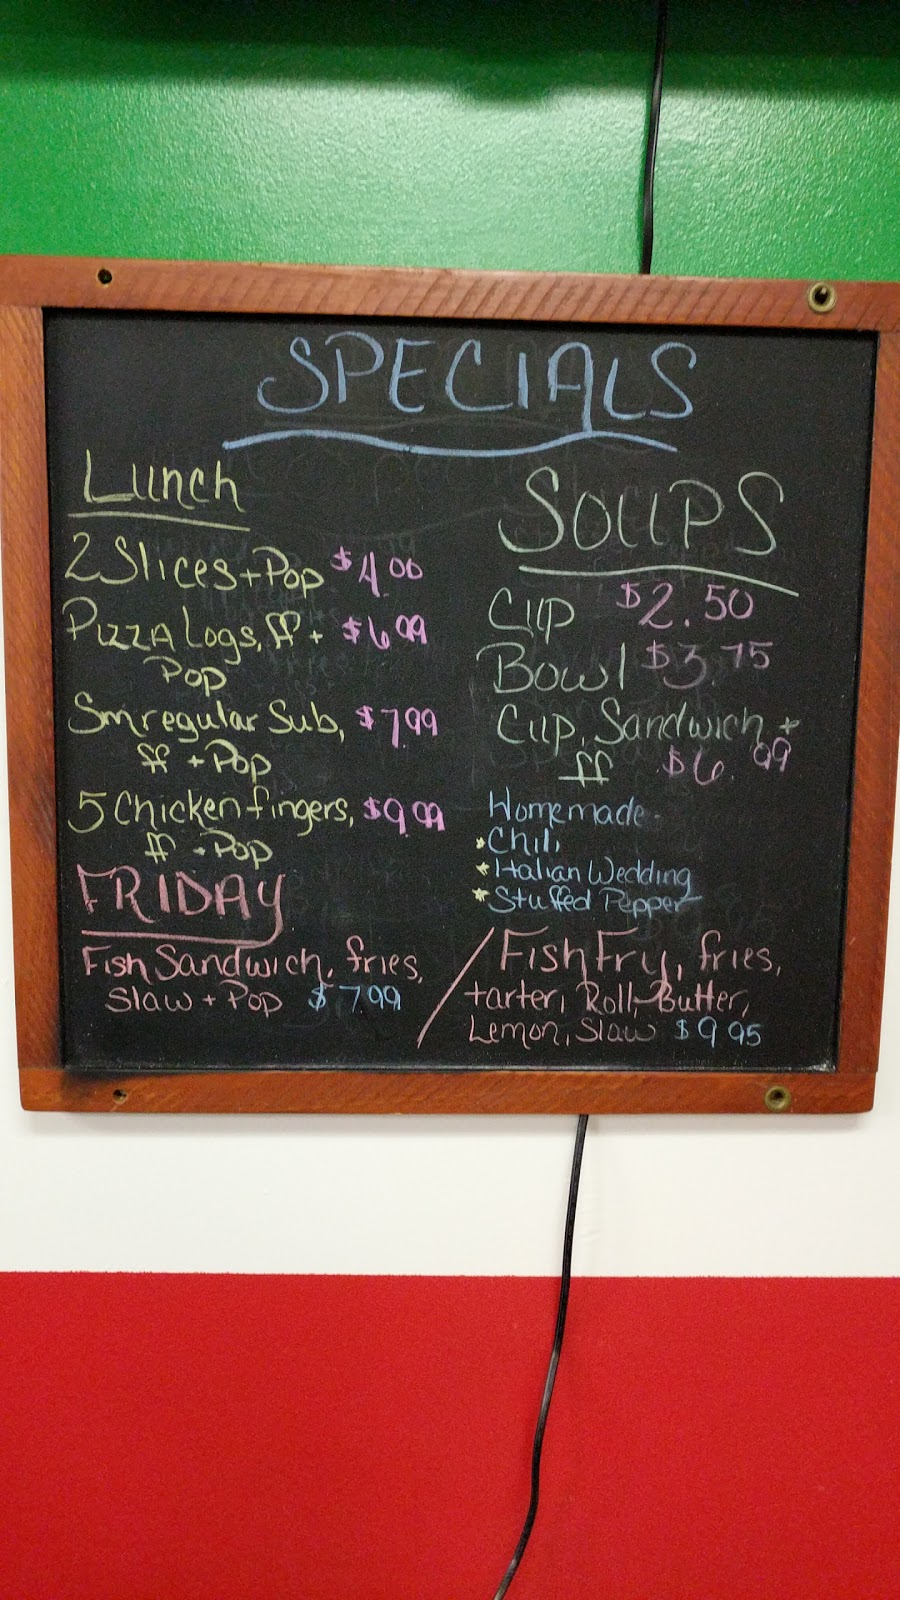 SPECIALS
Lunch
2 Slices + Pop $4.00
Pizza Logs, ff + $6.99
Pop
Sm regular Sub, $7.99
ff + Pop
5 Chicken fingers, $9.99
ff + Pop
SOUPS
Cup $2.50
Bowl $3.75
Cup, Sandwich +
ff $6.99
Homemade
*Chili
*Italian Wedding
*Stuffed Pepper
FRIDAY
Fish Sandwich, fries,
Slaw + Pop $7.99
Fish Fry, fries,
tarter, Roll, Butter,
Lemon, Slaw $9.95